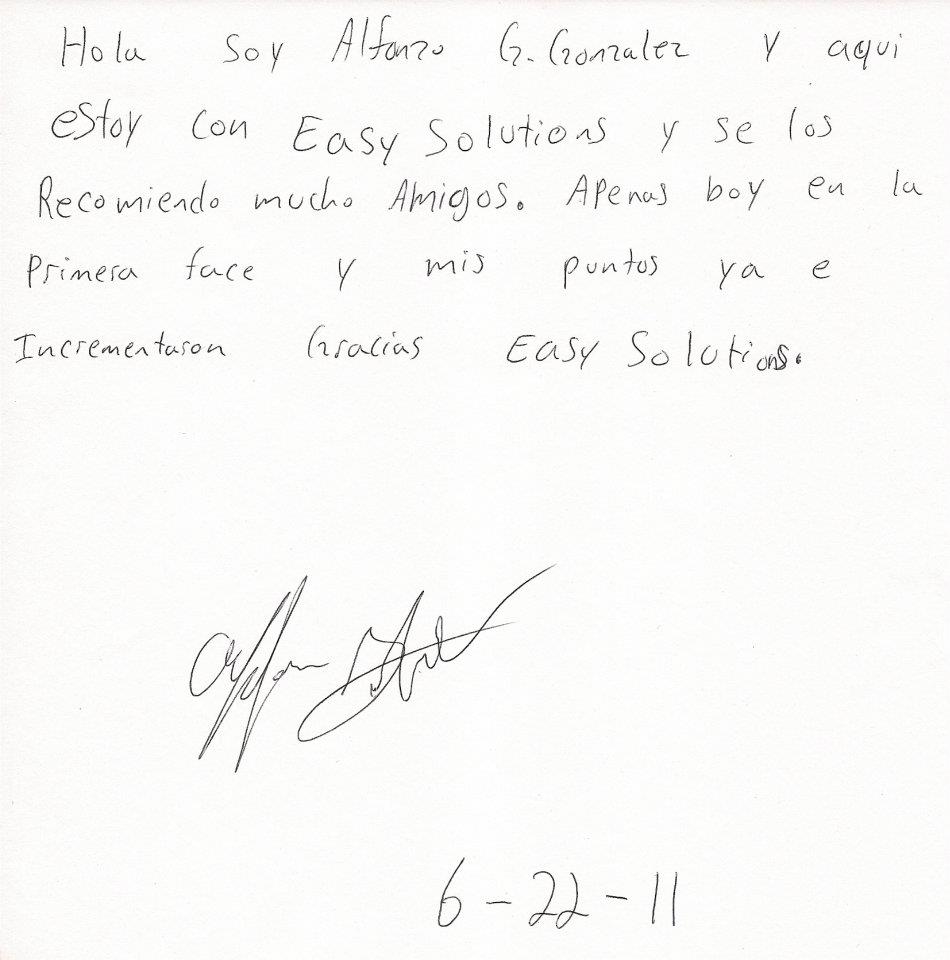 Hola Soy Alfonzo G. Gonzalez y aqui
estoy con Easy Solutions y se los
Recomiendo mucho Amigos. Apenas boy en la
primera face y mis puntos ya e
Incrementaron Gracias Easy Solutions.
6-22-11